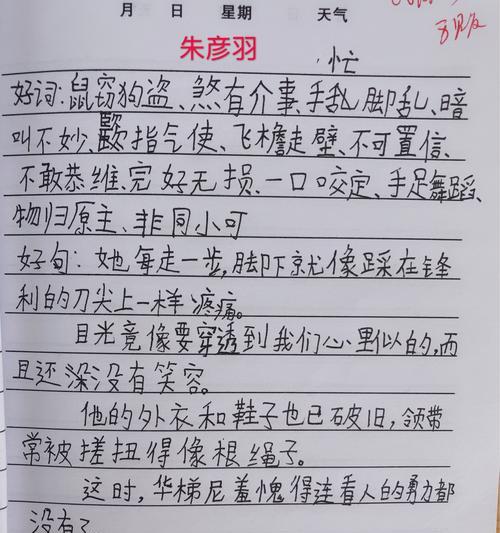 月 日 星期 天气
朱彦羽
忙
好词:鼠窃狗盗、煞有介事、手乱脚乱、暗
叫不妙、颐指气使、飞檐走壁、不可置信、
不敢恭维、完好无损、一口咬定、手足舞蹈、
物归原主、非同小可
好句:她每走一步,脚下就像踩在锋
利的刀尖上一样疼痛。
目光竟像要穿透到我们心里似的,而
且还深没有笑容。
他的外衣和鞋子也已破旧,领带
常被搓扭得像根绳子。
这时,华梯尼羞愧得连看人的勇力都
没有了